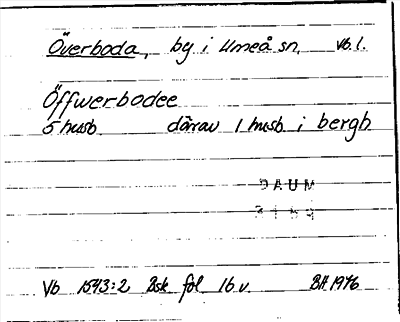 Överboda, by i Umeå sn, Vb.l.
Öffwerbodee
5 husb därav 1 husb i bergh
DAUM
Vb 1543:2 Bsk fol 16 v. BH 1976